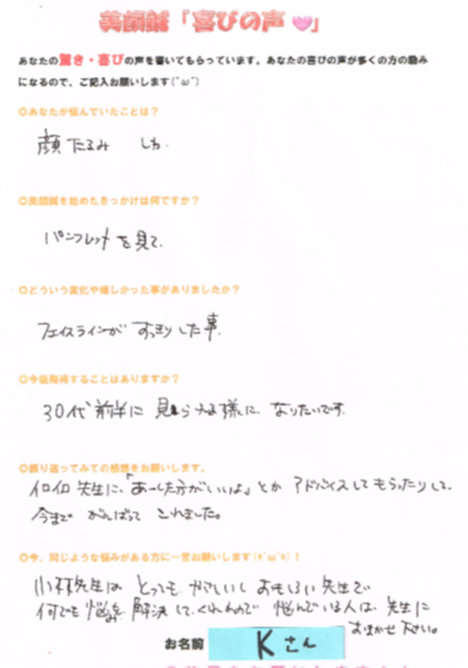 美顔鍼「喜びの声💗」
あなたの驚き・喜びの声を書いてもらっています。あなたの喜びの声が多くの方の励み
になるので、ご記入お願いします(*^ω^*)
◎あなたが悩んでいたことは？
顔 たるみ しわ.
◎美顔鍼を始めたきっかけは何ですか？
パンフレットを見て.
◎どういう変化や嬉しかった事がありましたか？
フェイスラインが すっきりした事.
◎今後期待することはありますか？
30代前半に 見られる様に なりたいです.
◎振り返ってみての感想をお願いします。
イロイロ 先生に、「あーした方がいいよ」とか アドバイスしてもらったりして、
今まで がんばって これました。
◎今、同じような悩みがある方に一言お願いします(*^ω^*)！
小林先生は とっても やさしいし おもしろい 先生で
何でも 悩みを 解決してくれるので 悩んでいる人は、先生に
おまかせ下さい。
お名前 Kさん